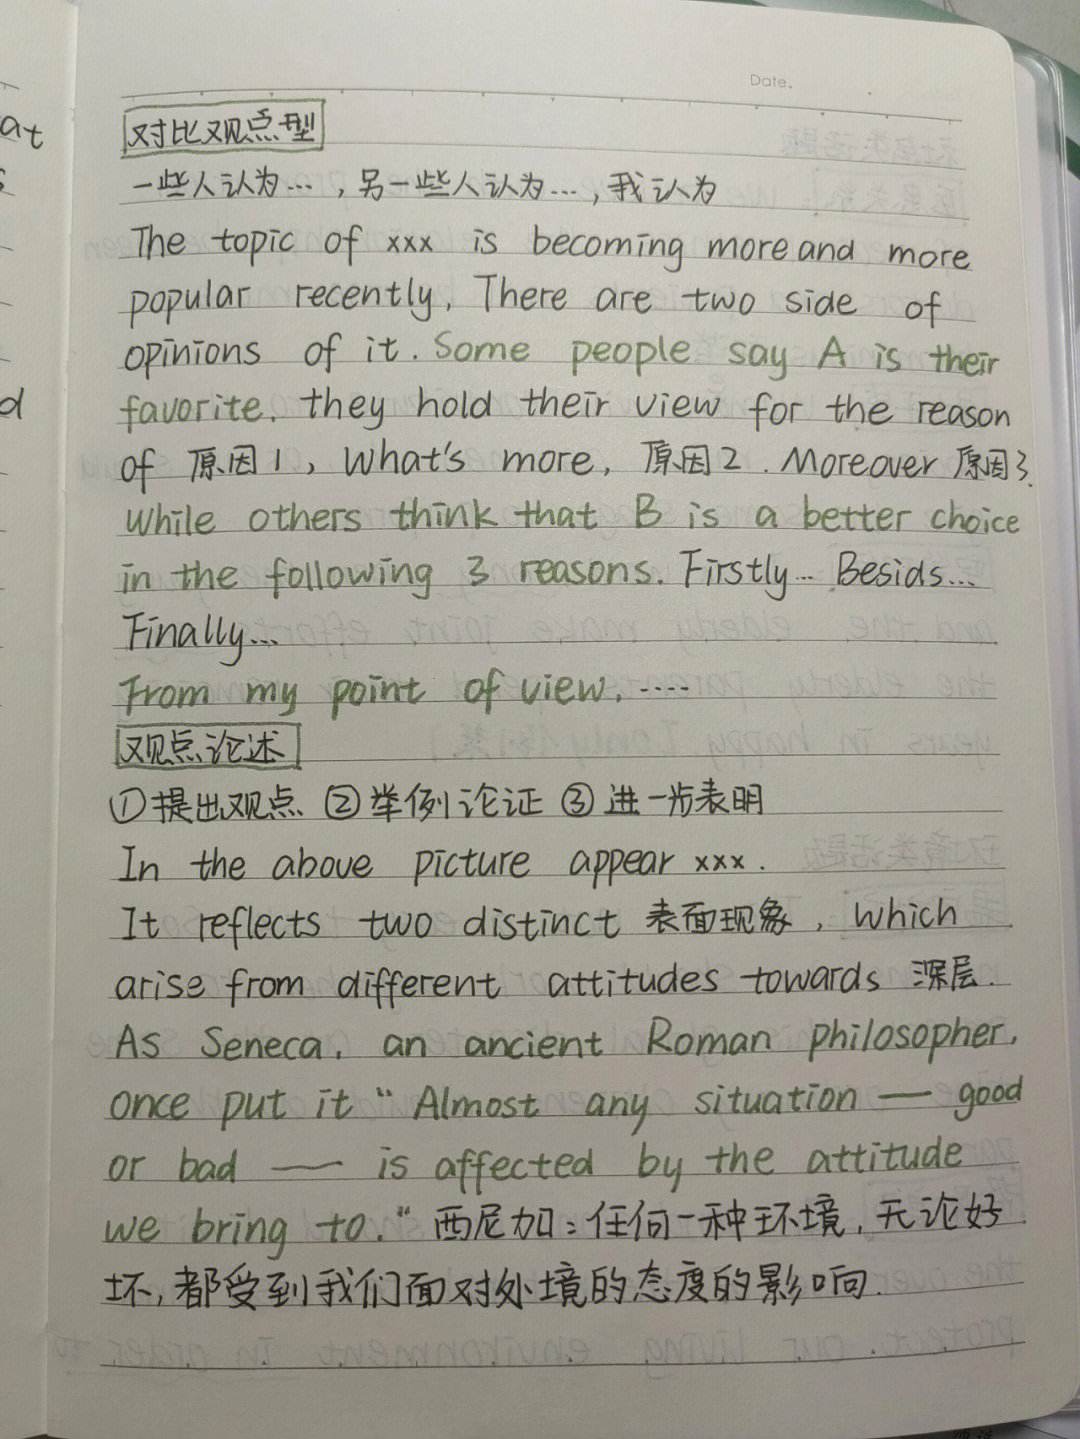 Date.
at
对比观点型
一些人认为…，另一些人认为…，我认为
The topic of xxx is becoming more and more
popular recently, There are two side of
opinions of it. Some people say A is their
d
favorite. they hold their view for the reason
of 原因1, What's more, 原因2. Moreover 原因3.
While others think that B is a better choice
in the following 3 reasons. Firstly… Besids…
Finally…
From my point of view, ……
观点论述
①提出观点 ②举例论证 ③进一步表明
In the above picture appear xxx.
It reflects two distinct 表面现象, which
arise from different attitudes towards 深层.
As Seneca, an ancient Roman philosopher,
once put it “Almost any situation — good
or bad — is affected by the attitude
we bring to.“ 西尼加：任何一种环境，无论好
坏，都受到我们面对外境的态度的影响.